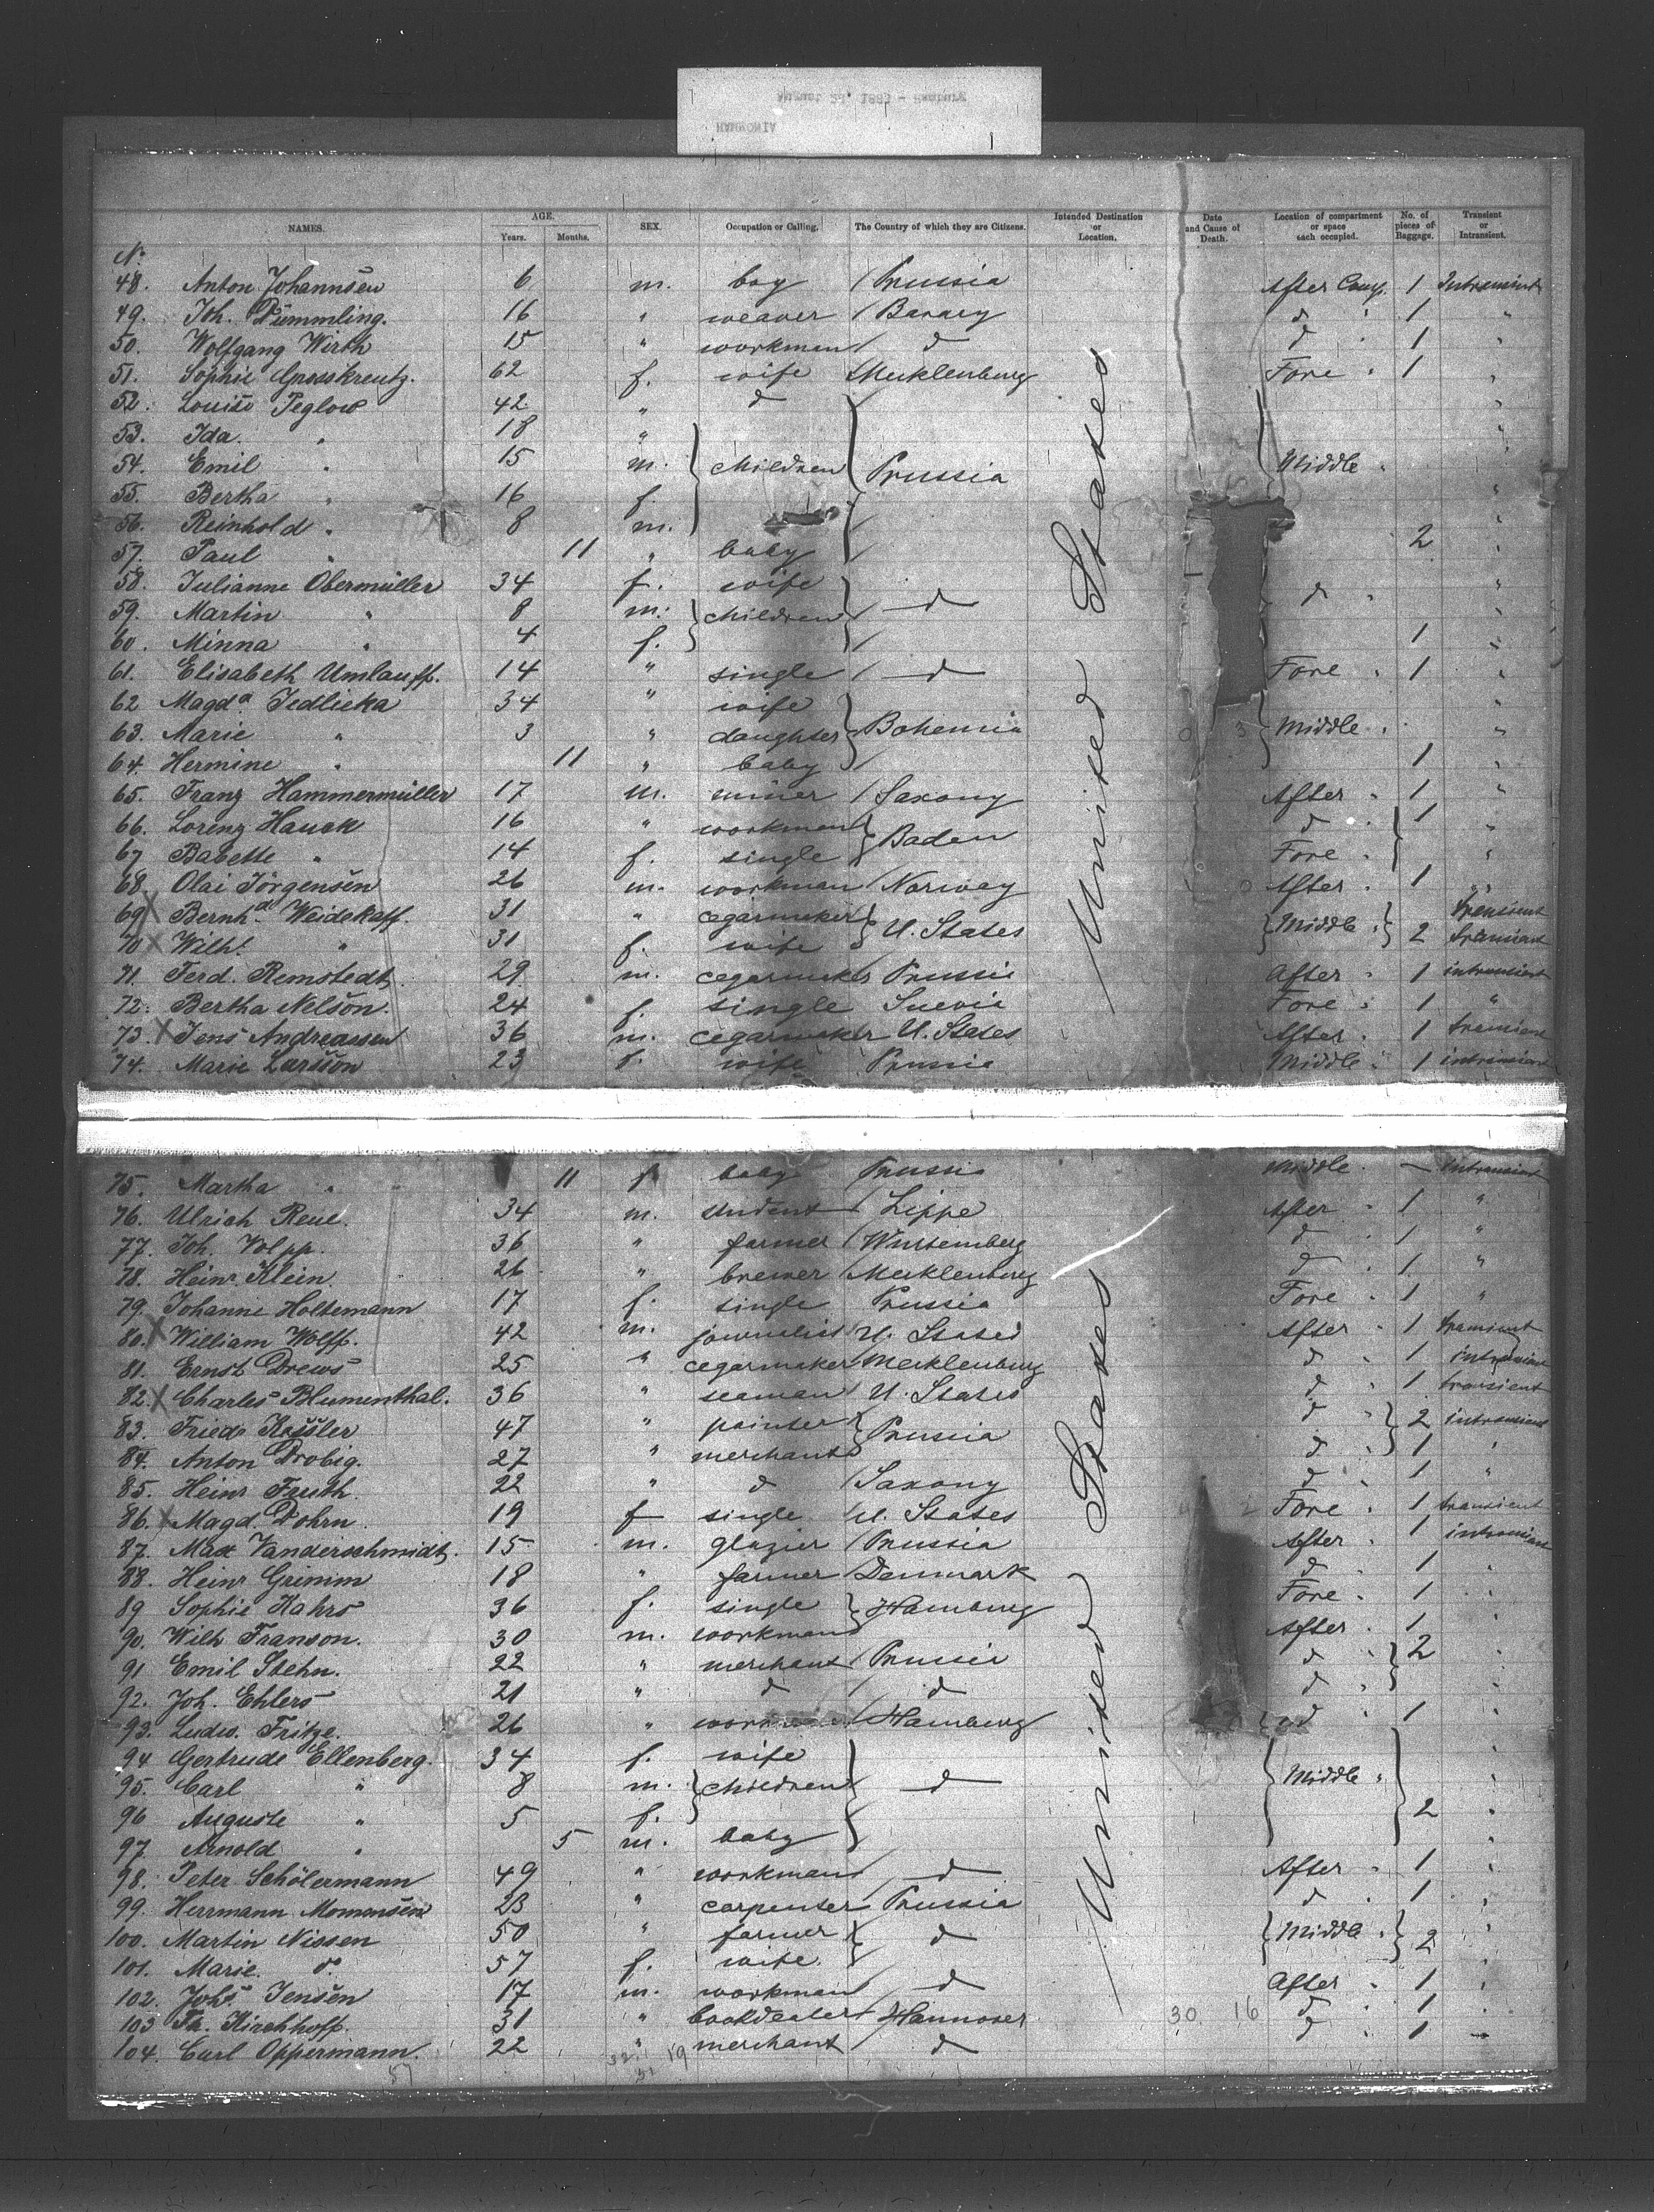 August 23, 1883 - Hamburg
HAMMONIA
NAMES. AGE. Years. Months. SEX. Occupation or Calling. The Country of which they are Citizens. Intended Destination or Location. Date and Cause of Death. Location of compartment or space each occupied. No. of pieces of Baggage. Transient or Intransient.
No
48. Anton Johannsen 6 m. boy Prussia After Comp. 1 Intransient
49. Joh. Dümmling. 16 " weaver Bavary d " 1 "
50. Wolfgang Wirth 15 " workman d d " 1 "
51. Sophie Grosskreutz. 62 f. wife Mecklenburg Fore " 1 "
52. Louise Teglow 42 " d "
53. Ida " 18 " "
54. Emil " 15 m. children Prussia Middle "
55. Bertha " 16 f. "
56. Reinhold " 8 m. "
57. Paul " 11 " baby 2 "
58. Julianne Obermüller 34 f. wife "
59. Martin " 8 m. children d d " "
60. Minna " 4 f. 1 "
61. Elisabeth Umlauff. 14 " single d Fore " 1 "
62 Magda. Jedlicka 34 " wife "
63. Marie " 3 " daughter Bohemia 0 3 Middle " "
64. Hermine " 11 " baby 1 "
65. Franz Hammermüller 17 m. miner Saxony After " 1 "
66. Lorenz Hauck 16 " workman Baden d " 1 "
67 Babette " 14 f. single Fore " "
68. Olai Jörgensen 26 m. workman Norway After " 1 "
69 X Bernhd. Weidskaff. 31 " cegarmaker U. States Middle " 2 transient
70 X Wilh. " 31 f. wife transient
71. Ferd. Remstedt 29 m. cegarmaker Prussia After " 1 intransient
72. Bertha Nelson. 24 f. single Suevia Fore " 1 "
73. X Jens Andreassen 36 m. cegarmaker U. States After " 1 transient
74. Marie Larsson 23 f. wife Prussia Middle " 1 intransient
75. Martha " 11 f baby Prussia Middle. — Intransient
76. Ulrich Reue. 34 m. student Lippe After " 1 "
77. Joh. Volpp. 36 " farmer Wurtemberg d " 1 "
78. Heinr. Klein. 26 " brewer Mecklenburg d " 1 "
79. Johanne Holtemann 17 f. single Prussia Fore " 1 "
80. X William Wolff. 42 m. journalist U. States After " 1 transient
81. Ernst Drews 25 " cegarmaker Mecklenburg d " 1 intransient
82. X Charles Blumenthal. 36 " seaman U. States d " 1 transient
83. Friedr Kessler 47 " painter Prussia d " 2 intransient
84. Anton Drobig. 27 " merchant d " 1 "
85. Heinr Fauth. 22 " d Saxony d " 1 "
86. X Magd. Dohrn 19 f single U. States Fore " 1 transient
87. Max Vanderschmidt. 15 m. glazier Prussia After " 1 intransient
88. Heinr Grimm 18 " farmer Denmark d " 1 "
89 Sophie Kahrs 36 f. single Hamburg Fore " 1 "
90. Wilh Franson. 30 m. workman After " 1 "
91 Emil Stehn. 22 " merchant Prussia d " 2 "
92. Joh. Ehlers 21 " d d d "
93. Ludw. Fritze. 26 " workman Hamburg d " 1 "
94 Gertrude Ellenberg. 34 f. wife "
95. Carl " 8 m. children d Middle " "
96 Auguste " 5 f. 2 "
97. Arnold " 5 m. baby
98. Peter Schölermann 49 " workman d After " 1 "
99. Herrmann Momensen 23 " carpenter Prussia d " 1 "
100. Martin Nissen 50 " farmer d Middle " 2 "
101. Marie. do 57 f. wife
102. Johs. Jensen 17 m. workman d After " 1 "
103 Th. Kirchhoff. 31 " bookdealer Hannover 30 16 d " 1 "
104. Carl Oppermann. 22 " merchant d d " 1 "
United States
United States